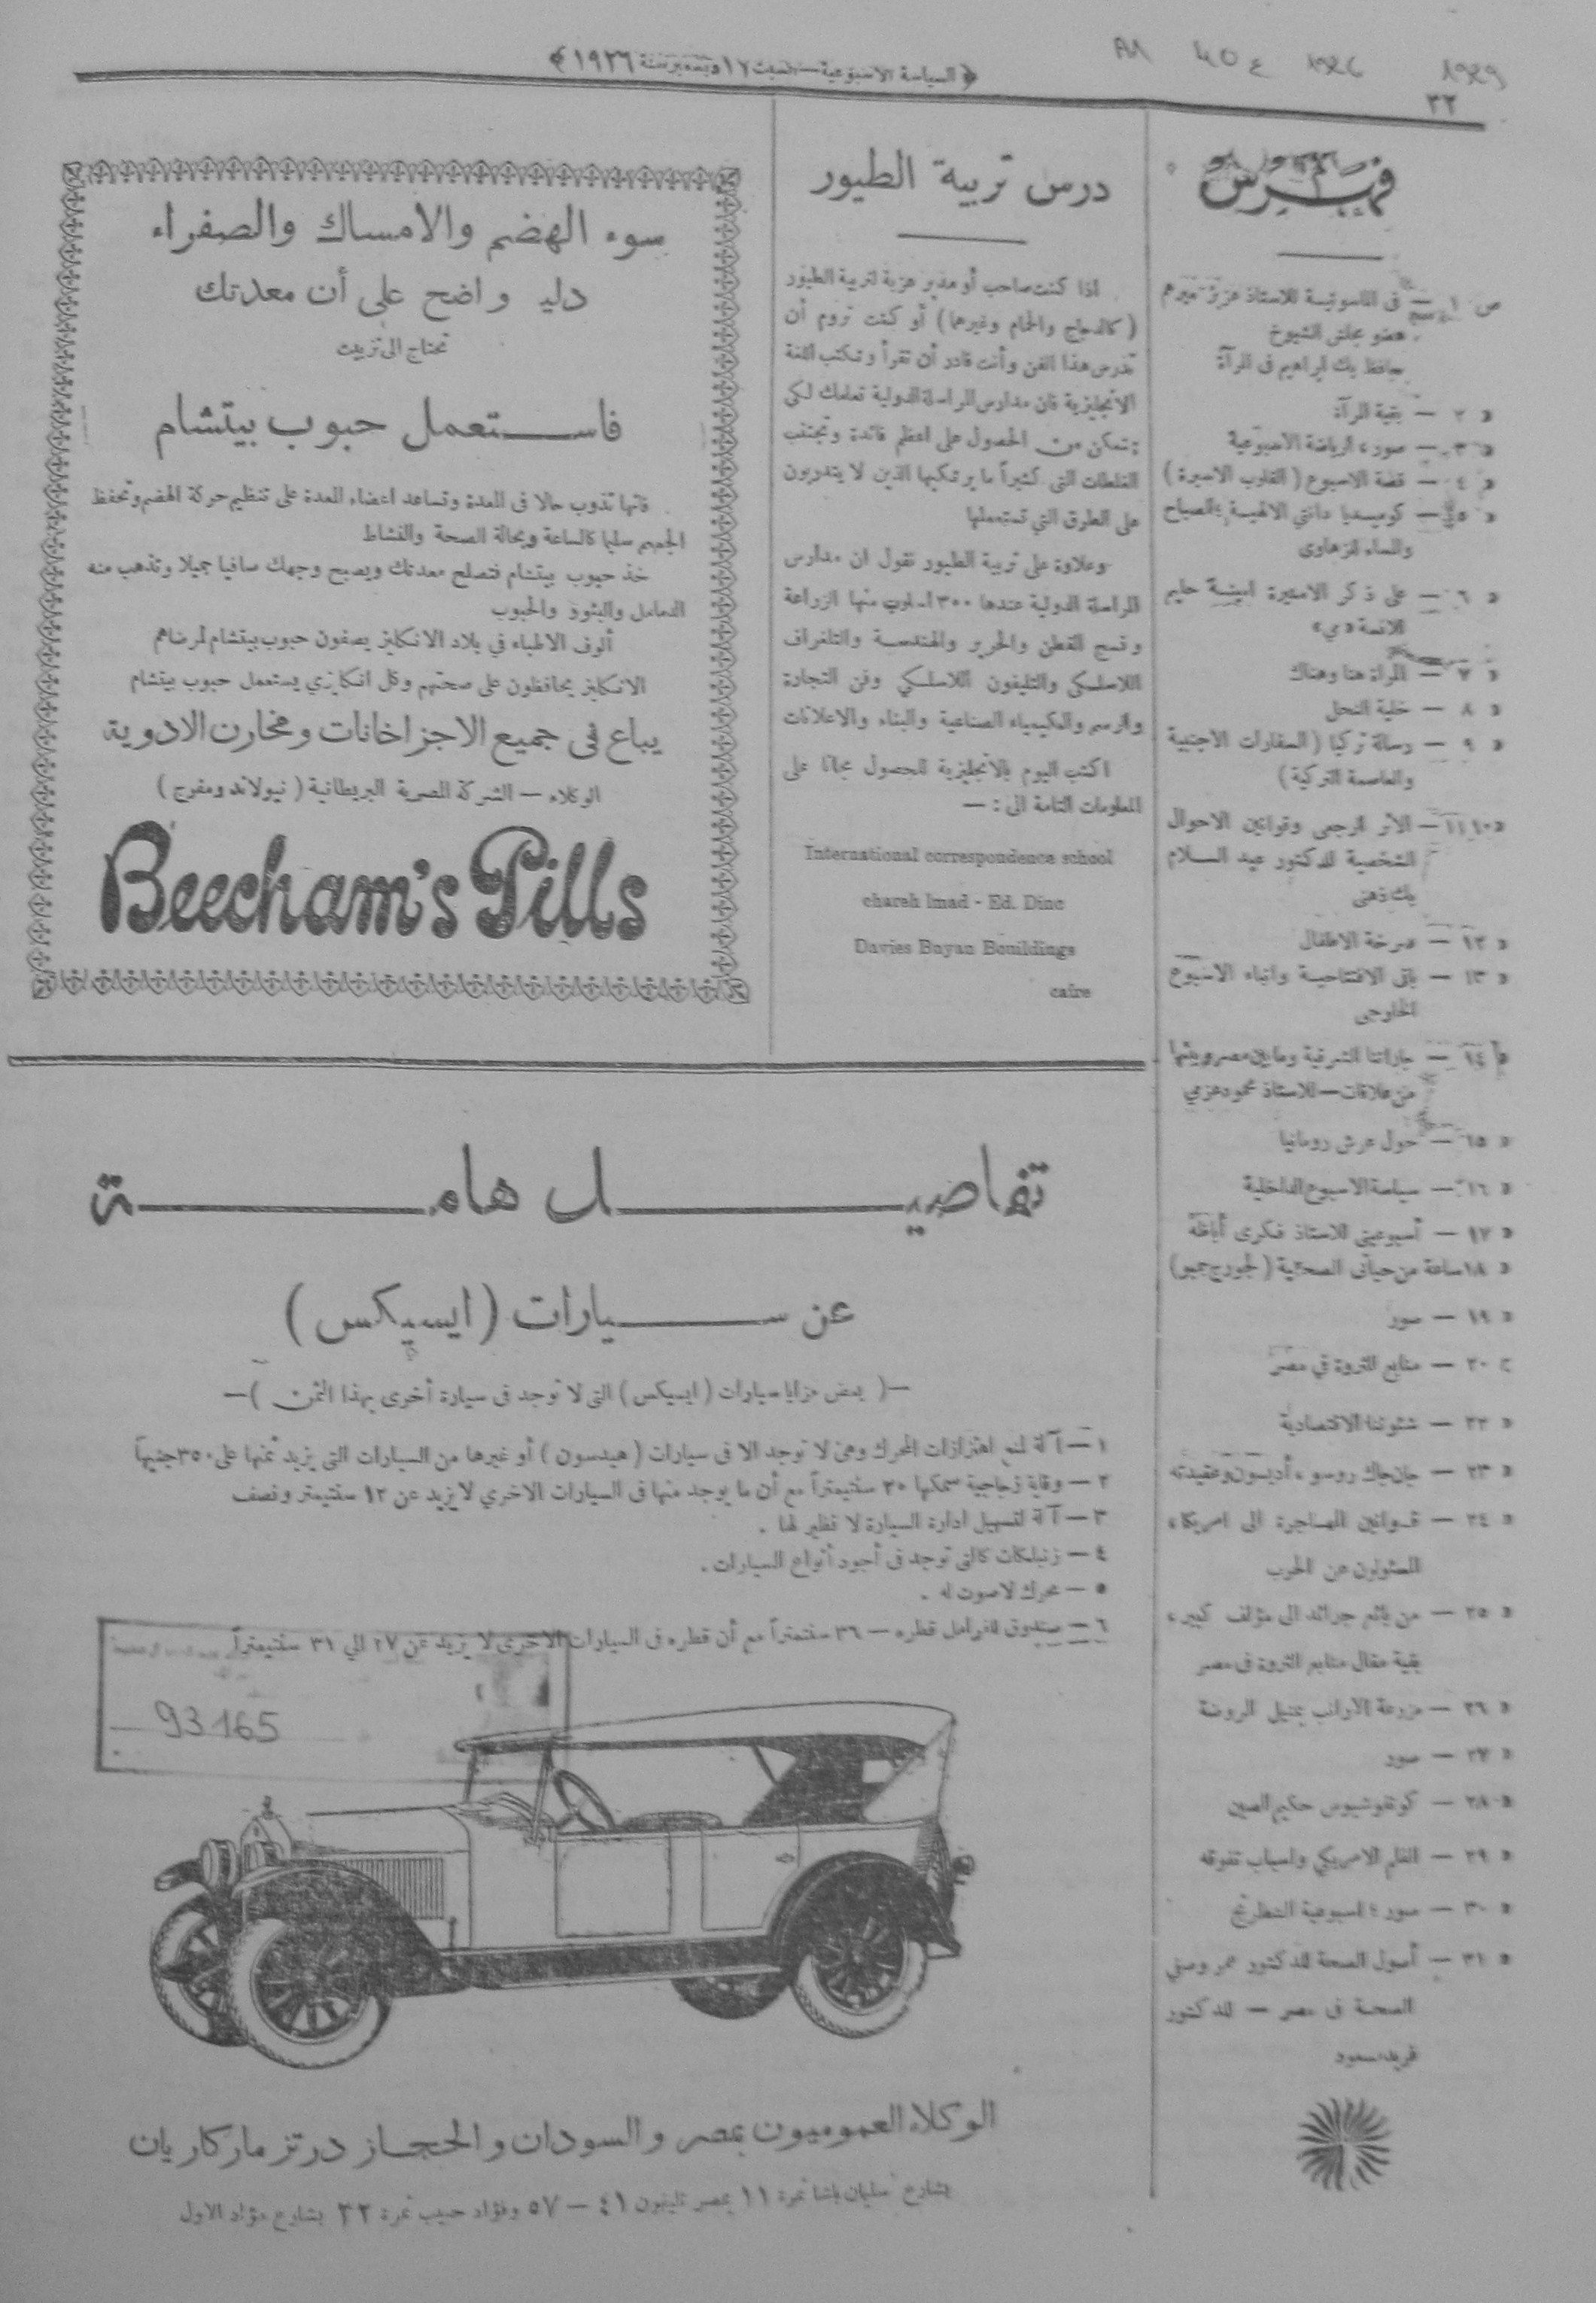 ﴿ السياسة الاسبوعية — السبت ١٧ ديسمبر سنة ١٩٢٦ ﴾
٣٢
فهرس
ص ١ — فى الماسونية للاستاذ عزيز ميرهم
عضو مجلس الشيوخ
حافظ بك ابراهيم فى المرآة
« ٢ — بقية المرآة
« ٣ — صور، الرياضة الاسبوعية
« ٤ — قصة الاسبوع ( القلوب الاسيرة )
« ٥ — كوميديا دانتي الالهية، الصباح
والمساء للزهاوى
« ٦ — على ذكر الاميرة امينة حليم
للانسة «مي»
« ٧ — المرأة هنا وهناك
« ٨ — خلية النحل
« ٩ — رسالة تركيا ( السفارات الاجنبية
والعاصمة التركية )
« ١٠،١١ — الاثر الرجعى وقوانين الاحوال
الشخصية للدكتور عبد السلام
بك ذهنى
« ١٢ — صرخة الاطفال
« ١٣ — باقى الافتتاحية وانباء الاسبوع
الخارجى
« ١٤ — جاراتنا الشرقية وما بين مصر وبينها
من علاقات — للاستاذ محمود عزمي
« ١٥ — حول عرش رومانيا
« ١٦ — سياسة الاسبوع الداخلية
« ١٧ — أسبوعيتى للاستاذ فكرى أباظة
« ١٨ ساعة من حياتى الصحفية ( لجورج )
« ١٩ — صور
« ٢٠ — منابع الثروة في مصر
« ٢٢ — شئوننا الاقتصادية
« ٢٣ — جان جاك روسو، أديسون وعقيدته
« ٢٤ — قوانين المهاجرة الى امريكا،
المسئولون عن الحرب
« ٢٥ — من بائع جرائد الى مؤلف كبير،
بقية مقال منابع الثروة فى مصر
« ٢٦ — مزرعة الارانب بمنيل الروضة
« ٢٧ — صور
« ٢٨ — كونفوشيوس حكيم الصين
« ٢٩ — الفلم الامريكي واسباب تفوقه
« ٣٠ — صور، اسبوعية الشطرنج
« ٣١ — أصول الصحة للدكتور عمر وصفي
الصحة فى مصر — للدكتور
فريد مسعود
درس تربية الطيور
اذا كنت صاحب أو مدير عزبة لتربية الطيور
( كالدجاج والحمام وغيرها ) أو كنت تروم أن
تدرس هذا الفن وأنت قادر أن تقرأ وتكتب اللغة
الانجليزية فان مدارس المراسلة الدولية تعلمك لكى
تتمكن من الحصول على اعظم فائدة وتجتنب
الغلطات التى كثيراً ما يرتكبها الذين لا يتدربون
على الطرق التي تستعملها
وعلاوة على تربية الطيور نقول ان مدارس
المراسلة الدولية عندها ٣٠٠ اسلوب منها الزراعة
ونسج القطن والحرير والهندسة والتلغراف
اللاسلكى والتليفون اللاسلكي وفن التجارة
والرسم والكيمياء الصناعية والبناء والاعلانات
اكتب اليوم بالانجليزية للحصول مجانا على
المعلومات التامة الى : —
International correspondence school
chareh Imad - Ed. Dinc
Davies Bayan Bouildings
caire
سوء الهضم والامساك والصفراء
دليل واضح على أن معدتك
تحتاج الى تزييت
فاستعمل حبوب بيتشام
فانها تذوب حالا فى المعدة وتساعد اعضاء المعدة على تنظيم حركة الهضم وتحفظ
الجسم سليما كالساعة وبحالة الصحة والنشاط
خذ حبوب بيتشام فتصلح معدتك ويصبح وجهك صافيا جميلا وتذهب منه
الدمامل والبثور والحبوب
ألوف الاطباء في بلاد الانكليز يصفون حبوب بيتشام لمرضاهم
الانكليز يحافظون على صحتهم وكل انكليزي يستعمل حبوب بيتشام
يباع فى جميع الاجزاخانات ومخازن الادوية
الوكلاء — الشركة المصرية البريطانية ( نيولاند ومفرج )
Beecham's Pills
تفاصيل هامة
عن سيارات ( ايسيكس )
—( بعض مزايا سيارات ( ايسيكس ) التى لا توجد فى سيارة أخرى بهذا الثمن )—
١ — آلة لمنع اهتزازات المحرك وهى لا توجد الا فى سيارات ( هيدسون ) أو غيرها من السيارات التى يزيد ثمنها على ٣٥٠ جنيهاً
٢ — وقاية زجاجية سمكها ٢٠ سنتيمتراً مع أن ما يوجد منها فى السيارات الاخري لا يزيد عن ١٢ سنتيمتر ونصف
٣ — آلة لتسهيل ادارة السيارة لا نظير لها .
٤ — زنبلكات كالتى توجد فى أجود أنواع السيارات .
٥ — محرك لاصوت له .
٦ — صندوق للفرامل قطره — ٣٦ سنتمتراً مع أن قطره فى السيارات الاخرى لا يزيد عن ٢٧ الي ٣١ سنتيمتراً
93165
الوكلاء العموميون بمصر والسودان والحجاز درتز ماركاريان
بشارع سليمان باشا نمرة ١١ بمصر تليفون ٤١ — ٥٧ وفؤاد حبيب نمرة ٢٢ بشارع فؤاد الاول